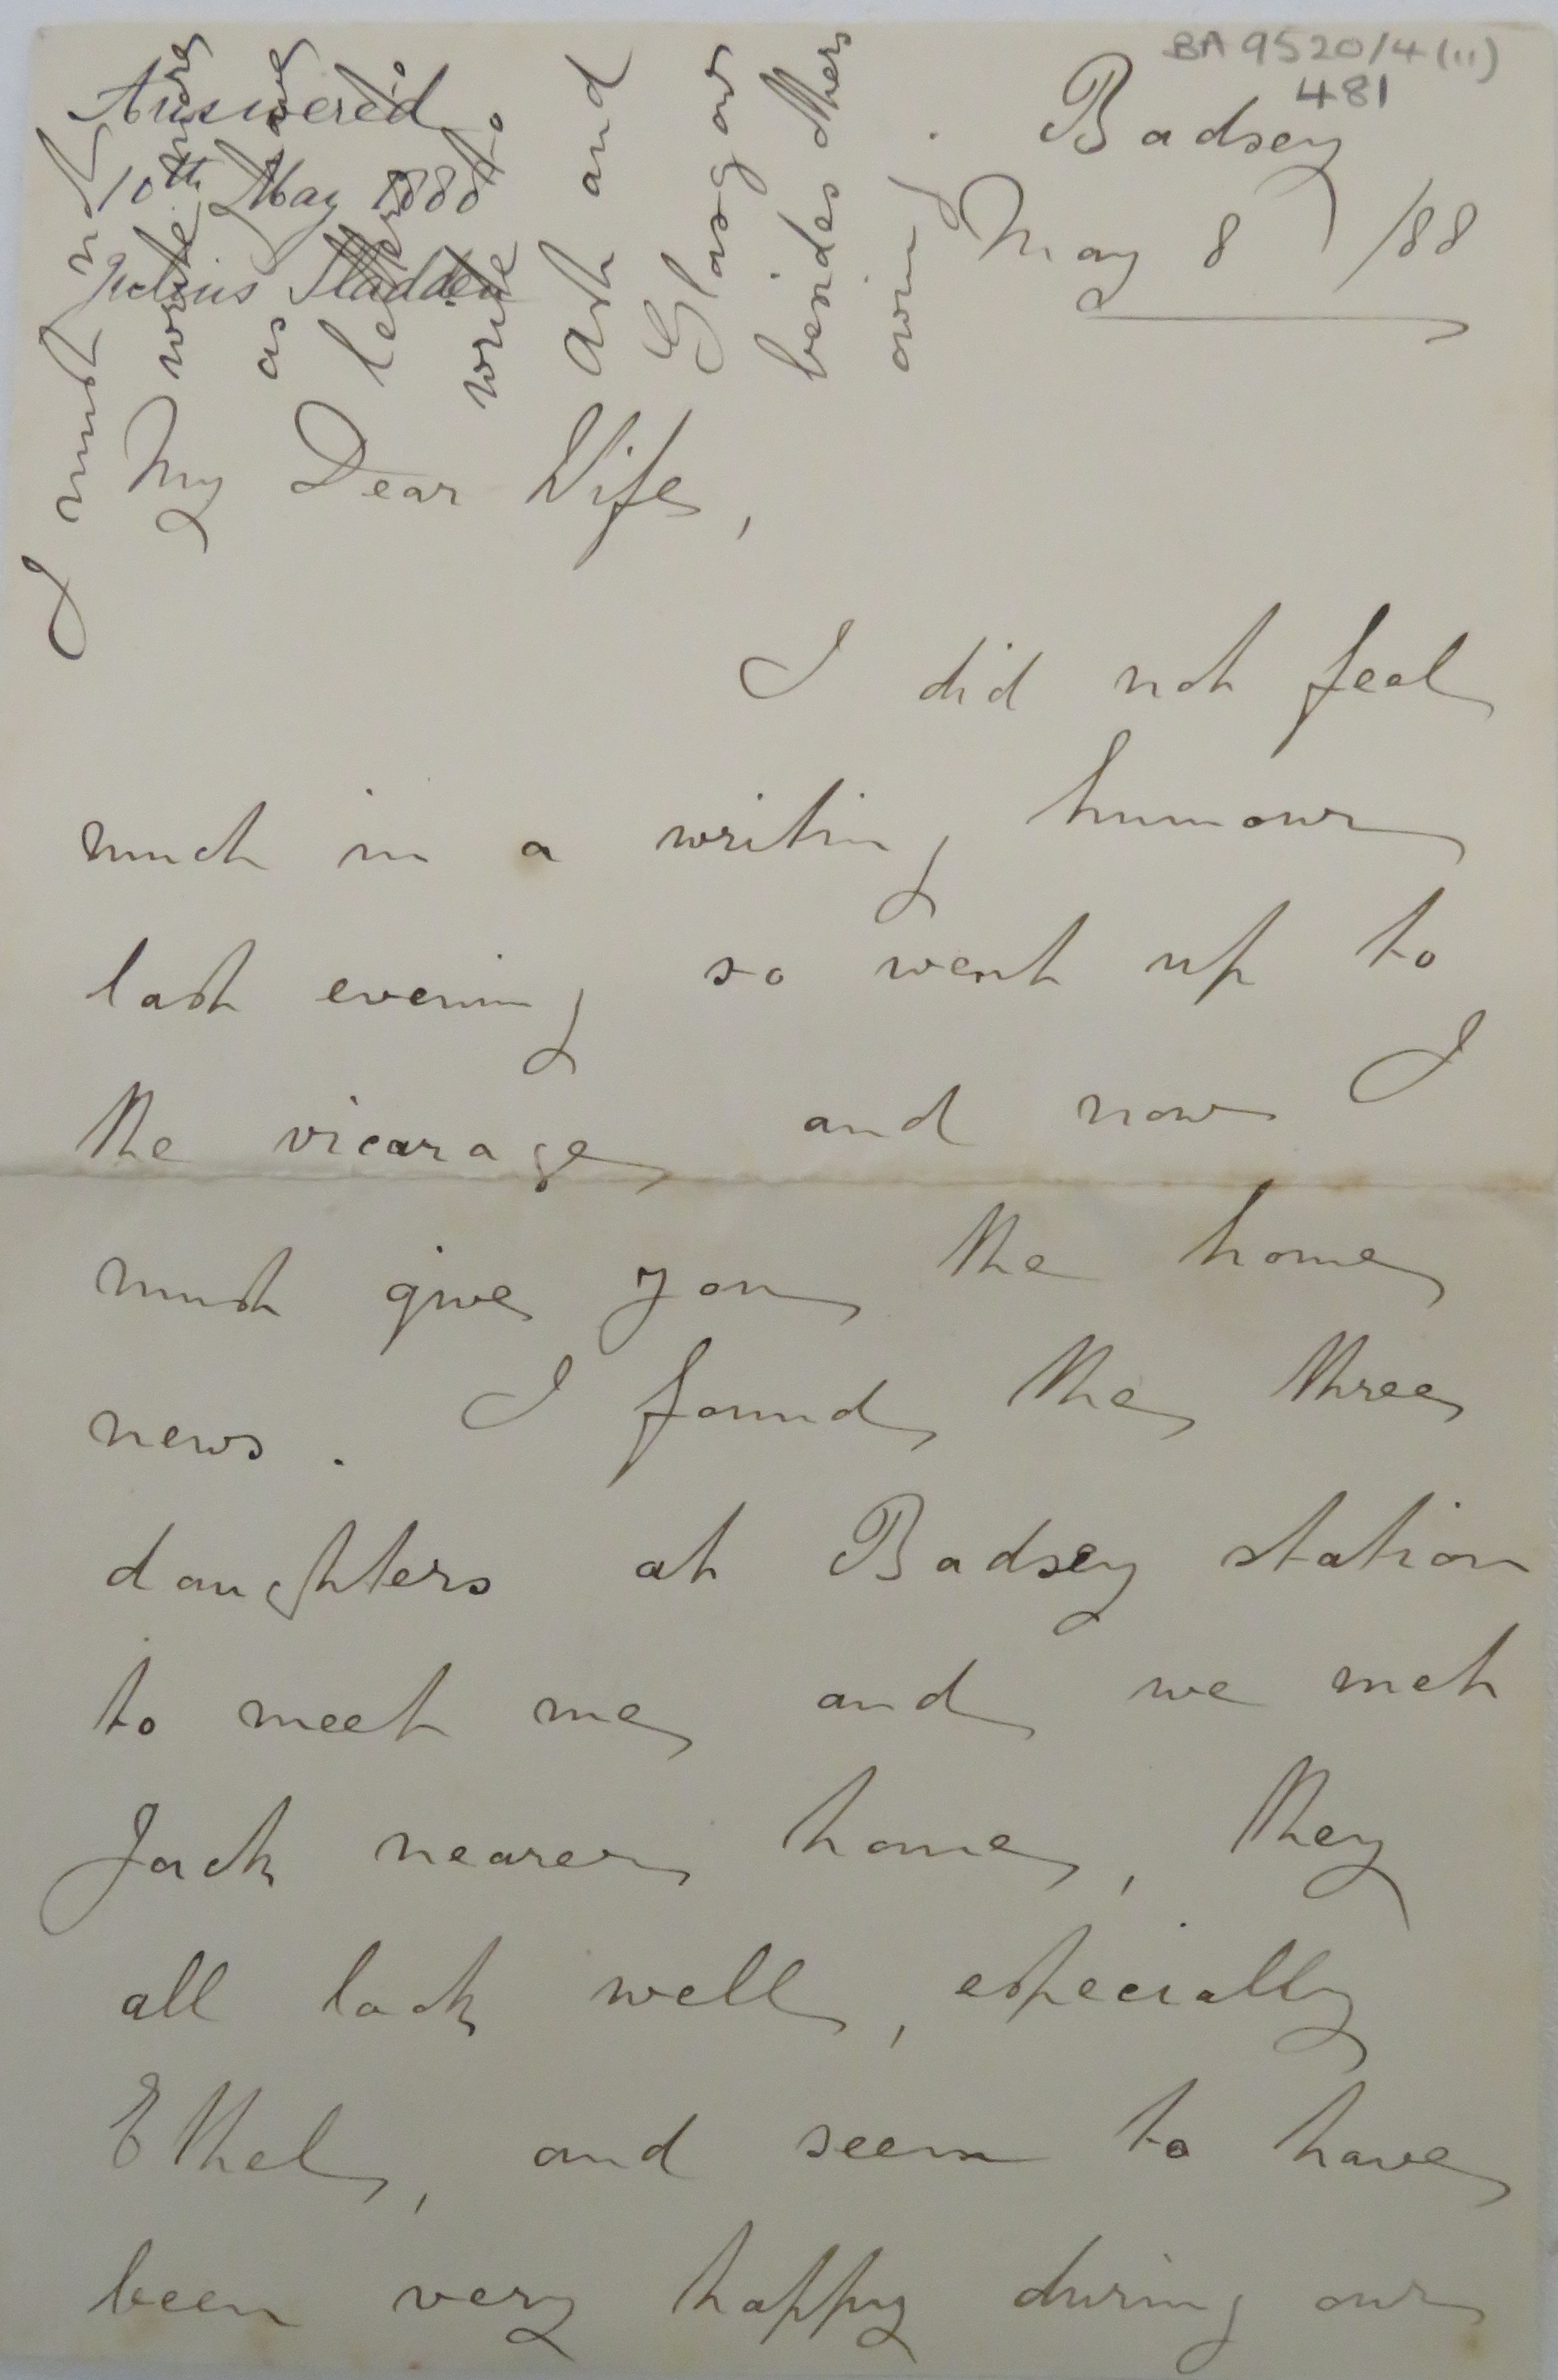 BA 9520/4 (11)
481
Answered
10th May 1888
Julius Sladden
Badsey
May 8 /88
My Dear Wife,
I did not feel
much in a writing humour
last evening so went up to
the vicarage and now I
must give you the home
news. I found the three
daughters at Badsey station
to meet me and we met
Jack nearer home, they
all look well, especially
Ethel, and seem to have
been very happy during our
I must not
write more
as I have
letters to
write to
Ash and
Glasgow
besides others
owing